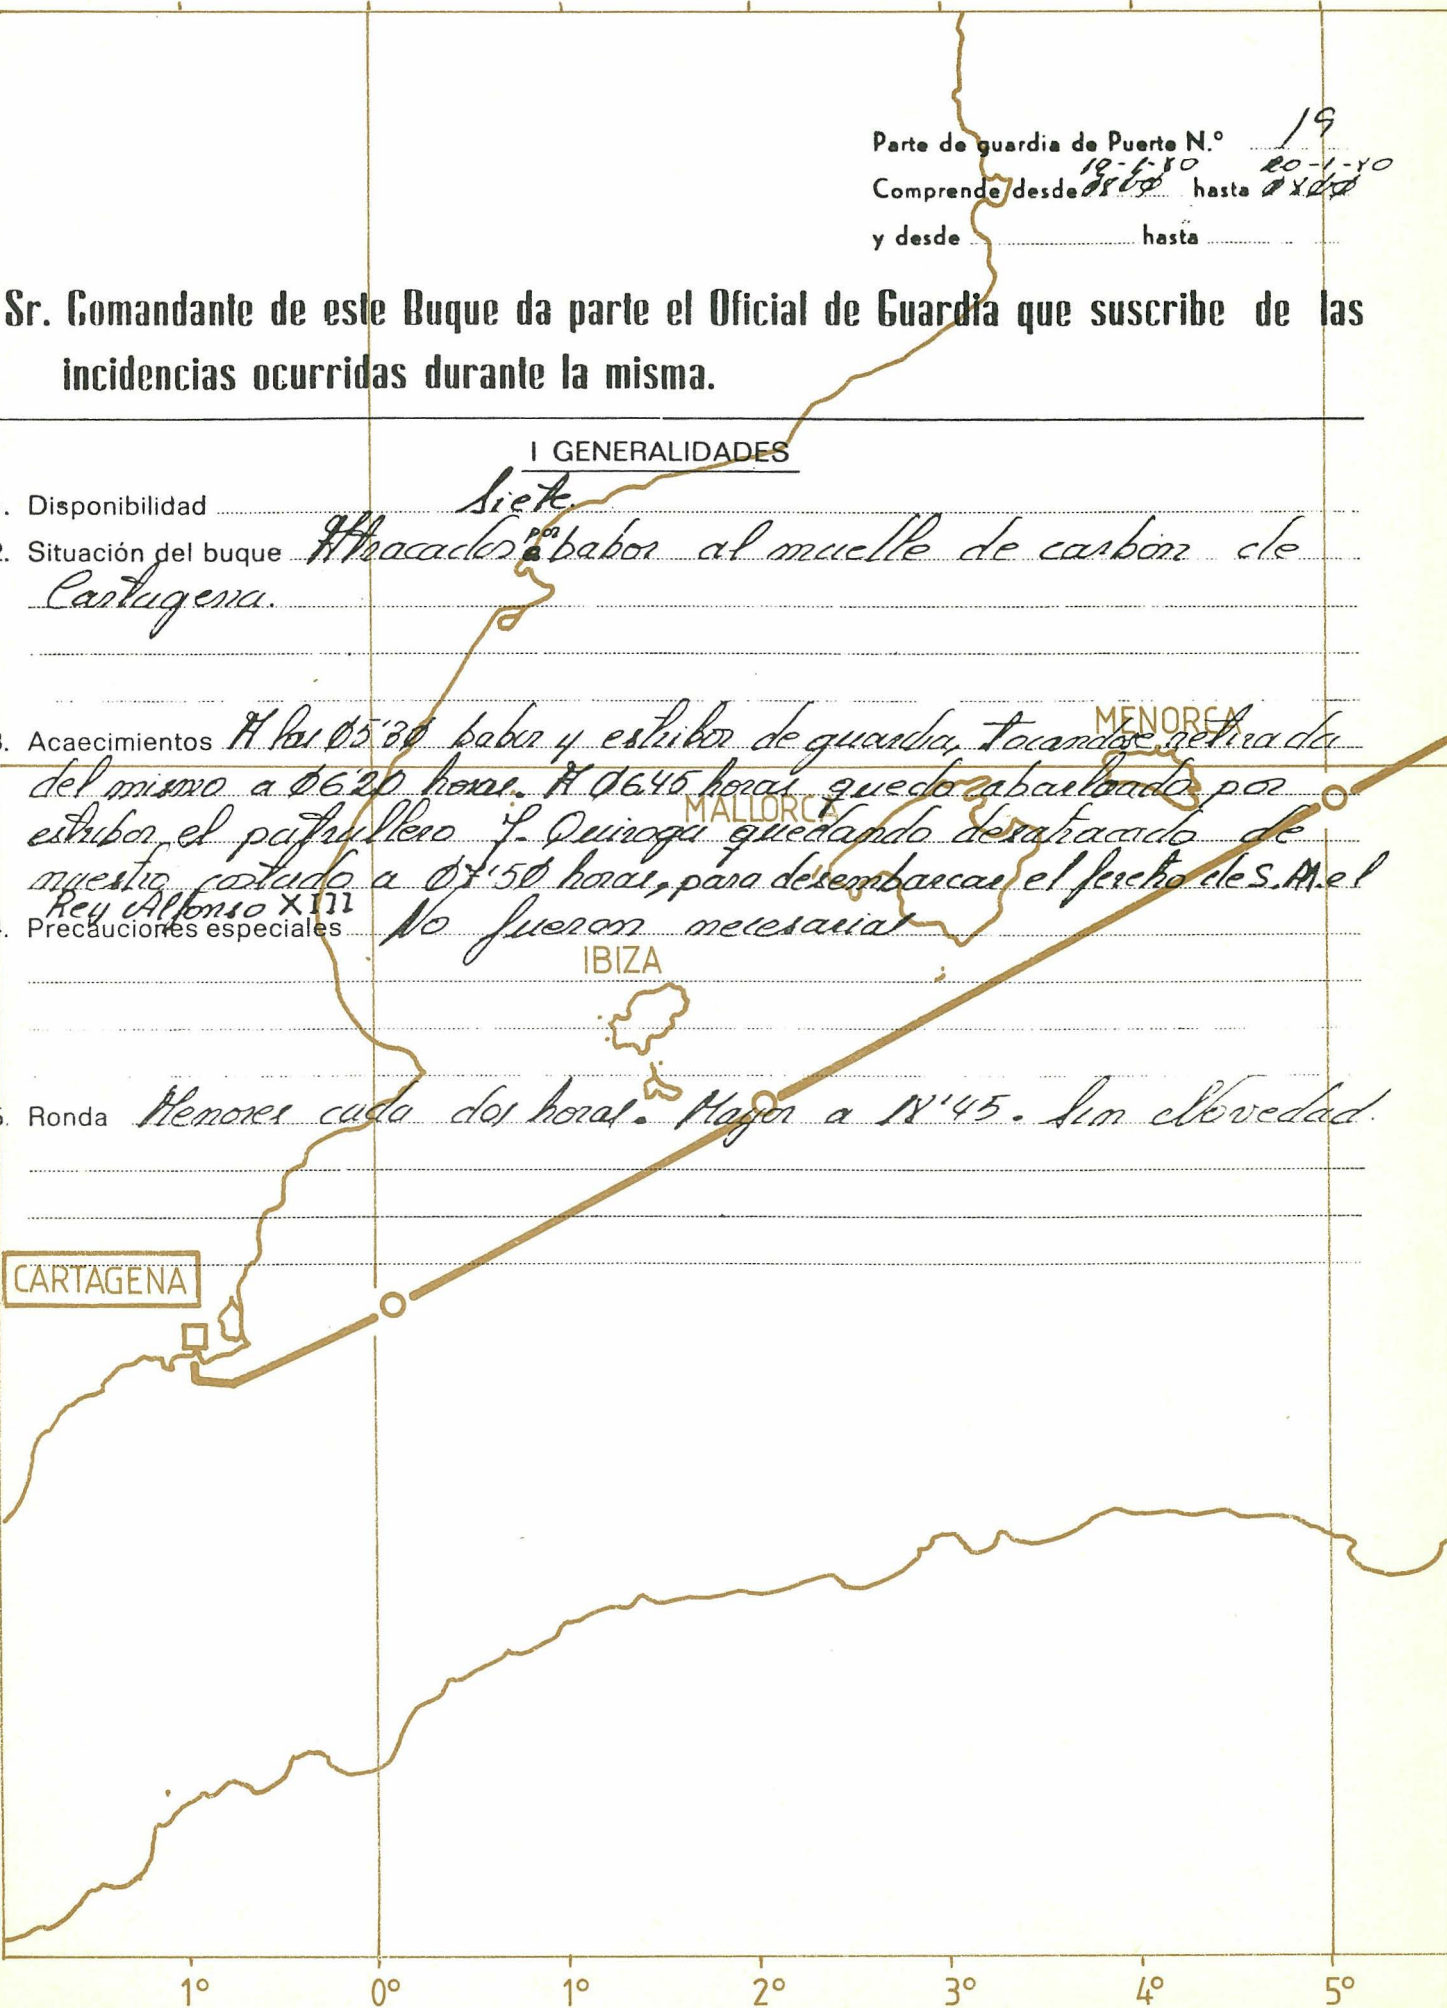 Parte de guardia de Puerto N.º 19
19-1-80 20-1-80
Comprende desde 0800 hasta 0800
y desde hasta
Sr. Comandante de este Buque da parte el Oficial de Guardia que suscribe de las
incidencias ocurridas durante la misma.
I GENERALIDADES
. Disponibilidad Siete.
2. Situación del buque Atracados por babor al muelle de carbón de
Cartagena.
3. Acaecimientos A las 05'30 babor y estribor de guardia, tocandose retirada
MENORCA
del mismo a 0620 horas. A 0645 horas quedo abarloado por
MALLORCA
estribor el patrullero J. Quiroga quedando desatracado de
nuestro costado a 07'50 horas, para desembarcar el feretro de S.M. el
Rey Alfonso XIII
. Precauciones especiales No fueron necesarias
IBIZA
5. Ronda Menores cada dos horas. Mayor a 18'45. Sin Novedad.
CARTAGENA
1° 0° 1° 2° 3° 4° 5°